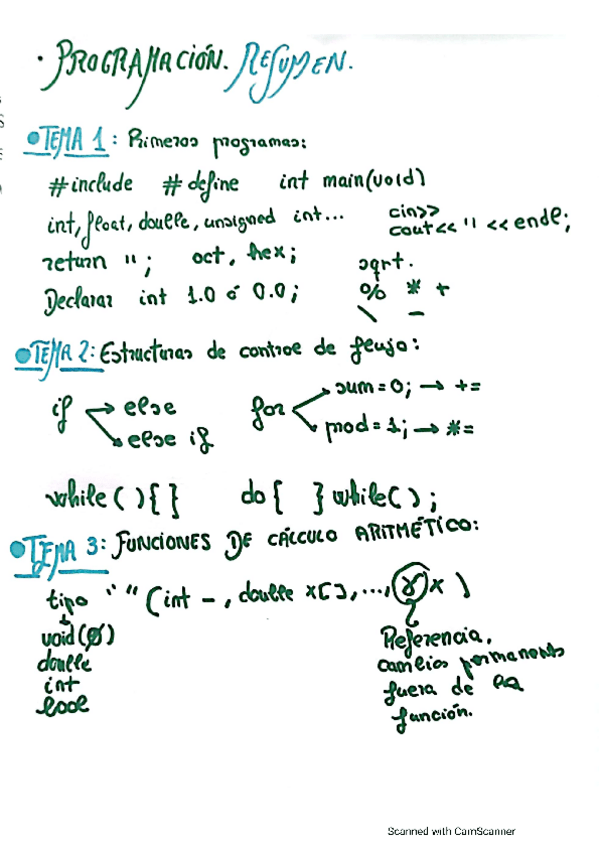 · PROGRAMACIÓN. RESUMEN.
TEMA 1: Primeros programas:
#include #define int main(void)
int, float, double, unsigned int... cin>>
cout<< " << endl;
return "; oct, hex; sqrt.
Declarar int 1.0 ó 0.0; % * +
\ -
TEMA 2: Estructuras de control de flujo:
if → else for → sum=0; → +=
→ else if → prod=1; → *=
while( ){ } do{ }while( );
TEMA 3: FUNCIONES DE CÁLCULO ARITMÉTICO:
tipo " " (int -, double x[], ..., & x )
void(Ø) Referencia,
double cambios permanents
int fuera de la
bool función.
Scanned with CamScanner